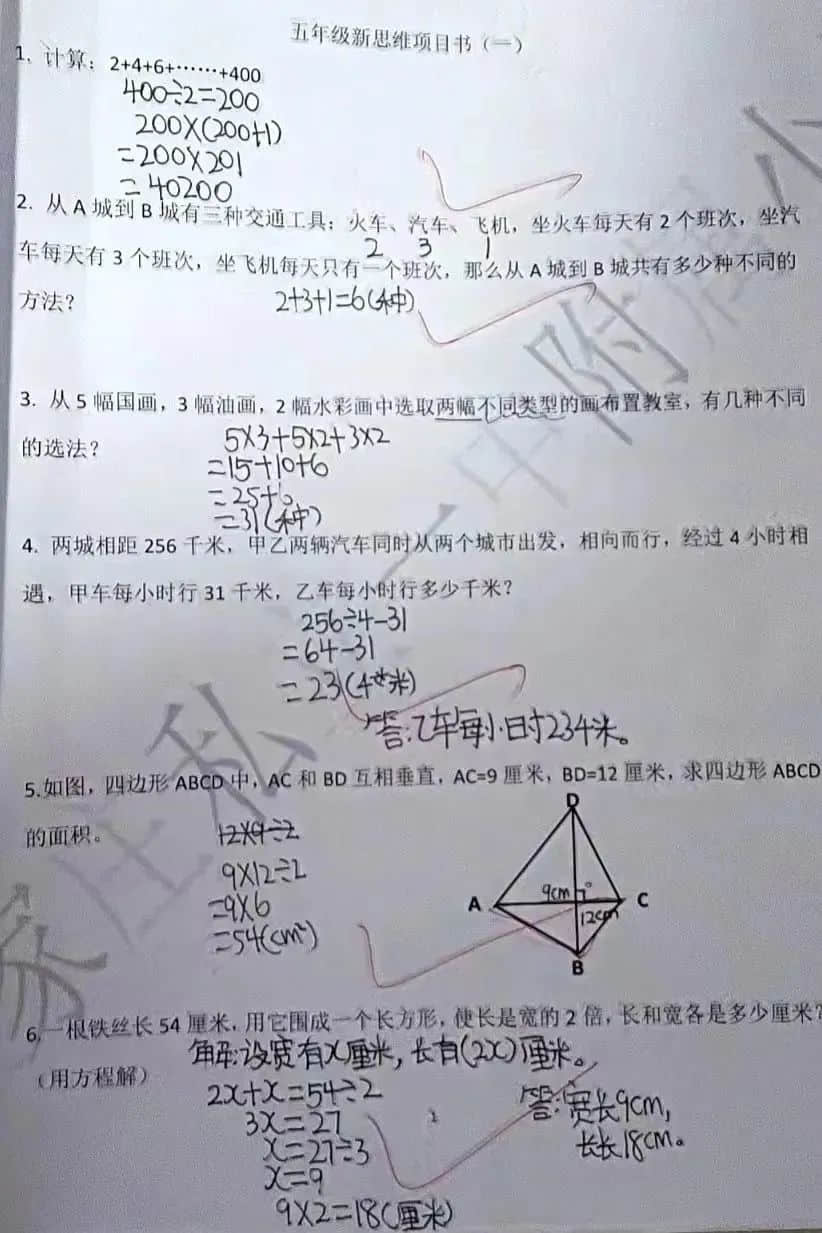 五年级新思维项目书（一）
1. 计算：2+4+6+……+400
400÷2=200
200×(200+1)
=200×201
=40200
2. 从 A 城到 B 城有三种交通工具：火车、汽车、飞机，坐火车每天有 2 个班次，坐汽
2 3 1
车每天有 3 个班次，坐飞机每天只有一个班次，那么从 A 城到 B 城共有多少种不同的
方法？
2+3+1=6(种)
3. 从 5 幅国画，3 幅油画，2 幅水彩画中选取两幅不同类型的画布置教室，有几种不同
的选法？
5×3+5×2+3×2
=15+10+6
=25+6
=31(种)
4. 两城相距 256 千米，甲乙两辆汽车同时从两个城市出发，相向而行，经过 4 小时相
遇，甲车每小时行 31 千米，乙车每小时行多少千米？
256÷4-31
=64-31
=23(千米)
答:乙车每小时23千米。
5.如图，四边形 ABCD 中，AC 和 BD 互相垂直，AC=9 厘米，BD=12 厘米，求四边形 ABCD
的面积。
12×9÷2
9×12÷2
=9×6
=54(cm²)
D
A
9cm
C
12cm
B
6.一根铁丝长 54 厘米，用它围成一个长方形，使长是宽的 2 倍，长和宽各是多少厘米？
解:设宽有x厘米,长有(2x)厘米。
（用方程解）
2x+x=54÷2
3x=27
x=27÷3
x=9
9×2=18(厘米)
答:宽长9cm,
长长18cm。